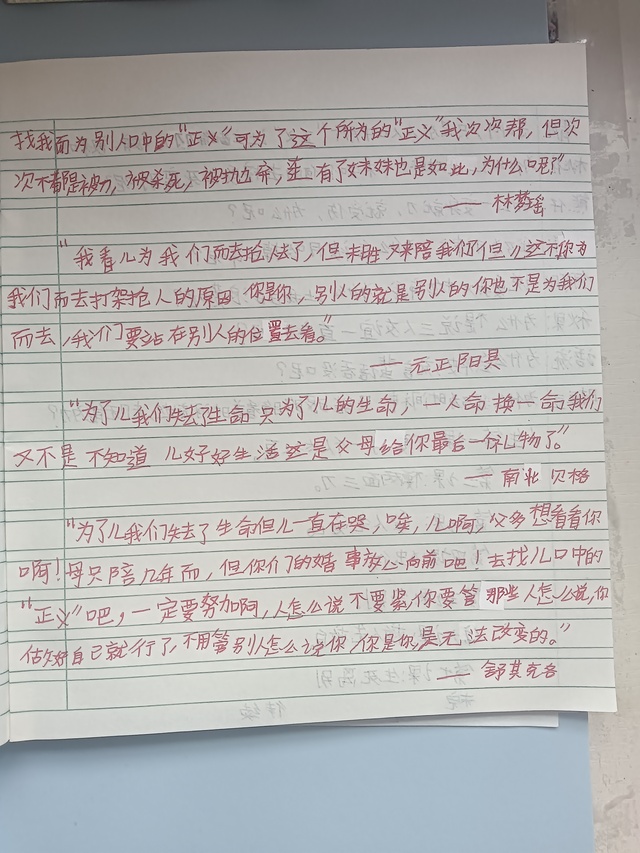 找我而为别人口中的"正义"可为了这个所为的"正义"我次次帮,但次
次不都是被劝,被杀死,被抛弃,连有了妹妹也是如此,为什么呢?"
—— 林梦瑶
"我看儿为我们而去抢人去了,但未胜又来陪我们但儿这不你为
我们而去打架抢人的原因,你是你,别人的就是别人的你也不是为我们
而去,我们要站在别人的位置去看。"
—— 元正阳具
"为了儿我们失去了生命只为了儿的生命,一人命换一命,我们
又不是不知道儿好好生活这是父母给你最后一份礼物了。"
—— 南北贝格
"为了儿我们失去了生命但儿一直在哭,唉,儿啊,父多想看看你
啊!母只陪几年而,但你们的婚事放心向前吧!去找儿口中的
"正义"吧,一定要努加啊,人怎么说不要紧,你要管那些人怎么说,你
做好自己就行了,不用管别人怎么说你,你是你,是无法改变的。"
—— 舒其克各